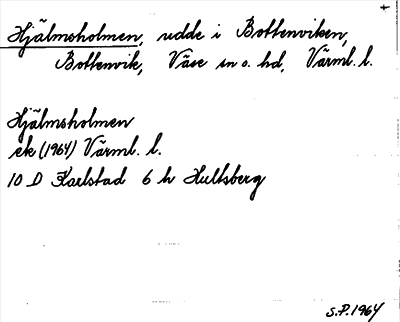 Hjälmsholmen, udde i Bottenviken,
Bottenvik, Väse sn o. hd, Värml. l.
Hjälmsholmen
ek (1964) Värml. l.
10 D Karlstad 6 h Hultsberg
S.P. 1964